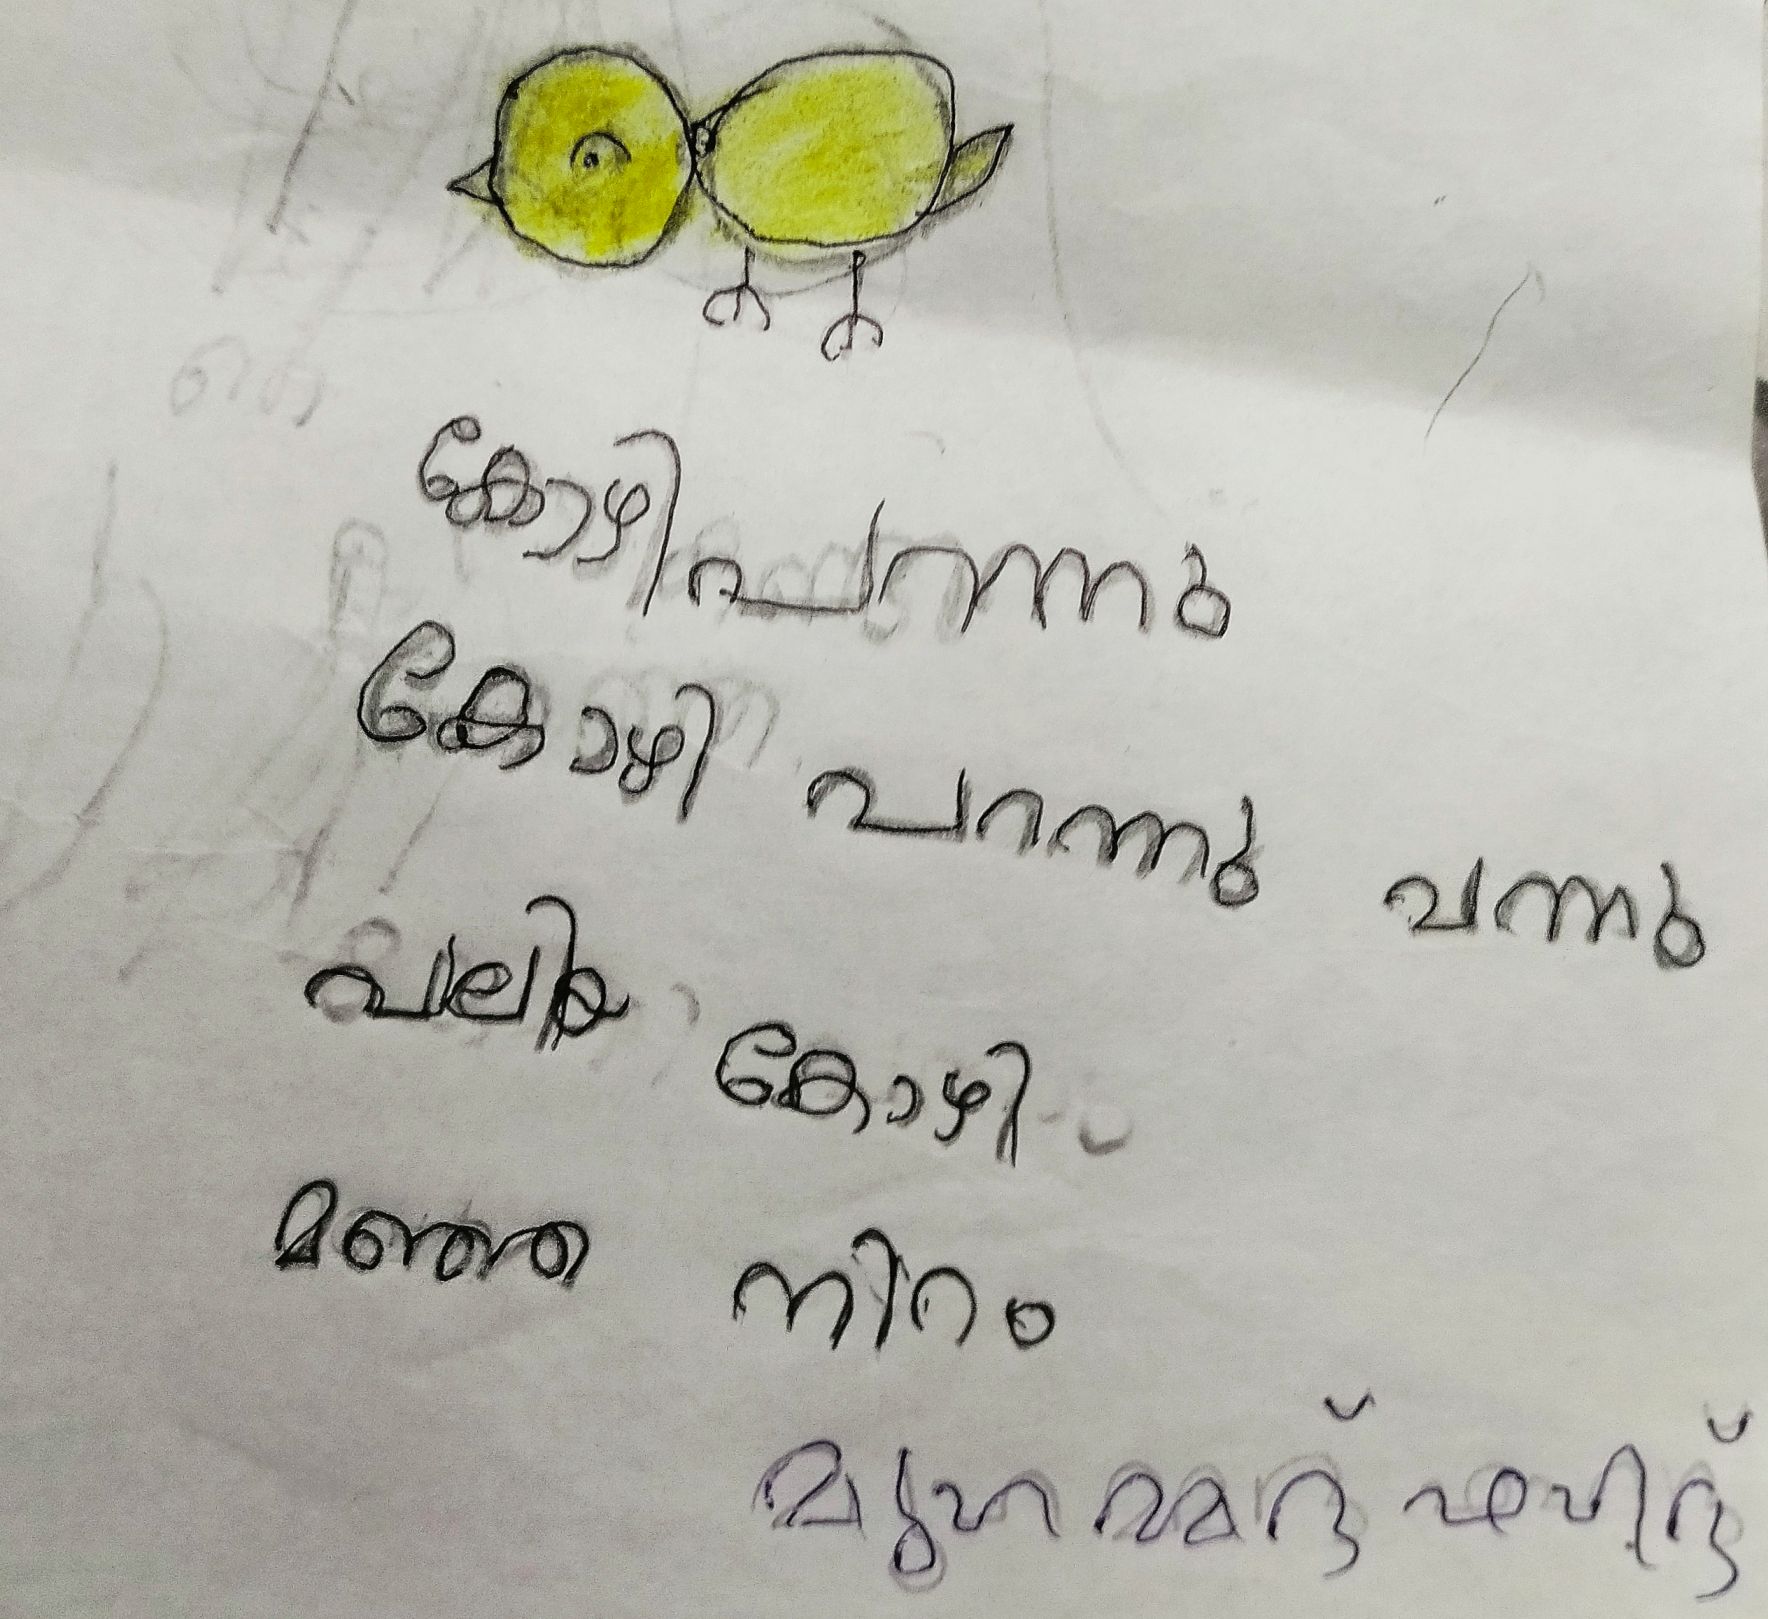 കോഴി പറന്നു
കോഴി പറന്നു വന്നു
വലിയ കോഴി
മഞ്ഞ നിറം
മുഹമ്മദ് ഫഹിദ്